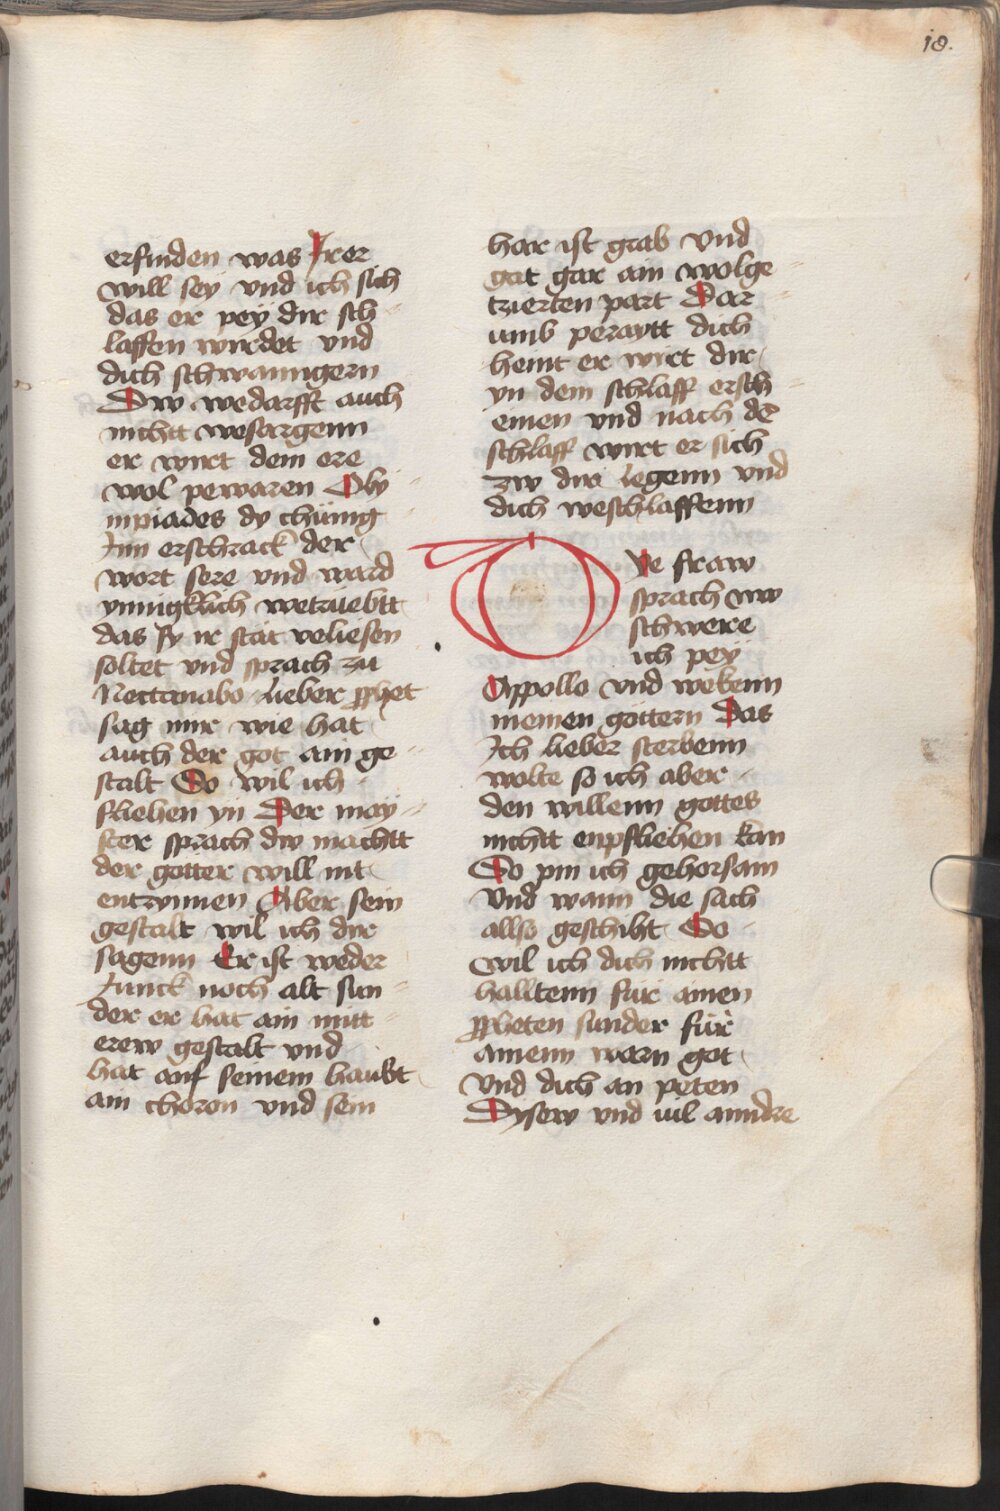 18.
erfinden was Irer
will sey vnd ich sich
das er pey dir sch
laffen wirdet vnd
dich schwanngern
Dw wedarfft auch
nichtt wesorgenn
er wirt dein ere
wol pewaren Oly
mpiades dy chünig
Inn erschrack der
wort sere vnd ward
ynnigklich wetrüebtt
das sy ir stät veliesen
soltet vnd sprach zu
Nectanabo Lieber ꝓphet
sag mir wie hat
auch der got ain ge
stalt So wil ich
fliehen yn Der may
ster sprach dw machtt
der gotter will nit
entrynnen Aber sein
gestalt wil ich dir
sagenn Er ist weder
Junck noch alt sun
der er hat ain mitt
erew gestalt vnd
hat auf seinem haubt
ain choron vnd sein
har ist grab vnd
gat gar ain wolge
tzierten part Dar
umb peraytt dich
heint er wirt dir
yn dem schlaff ersch
einen vnd nach dē
schlaff wirt er sich
zw dir legenn vnd
dich weschlaffenn
Dye fraw
sprach nw
schwere
ich pey
Appollo vnd weᷠkenn
meinen göttern Das
Ich lieber sterbenn
wolte so ich aber
den willenn gottes
nichtt enpfliehen kan
So pin ich gehorsam
Vnd wann die sach
allso geschiht So
wil ich dich nichtt
halltenn für ainen
ꝓpheten sunder für
ainenn warn got
Vnd dich an peten
Dysew vnd uil anndre